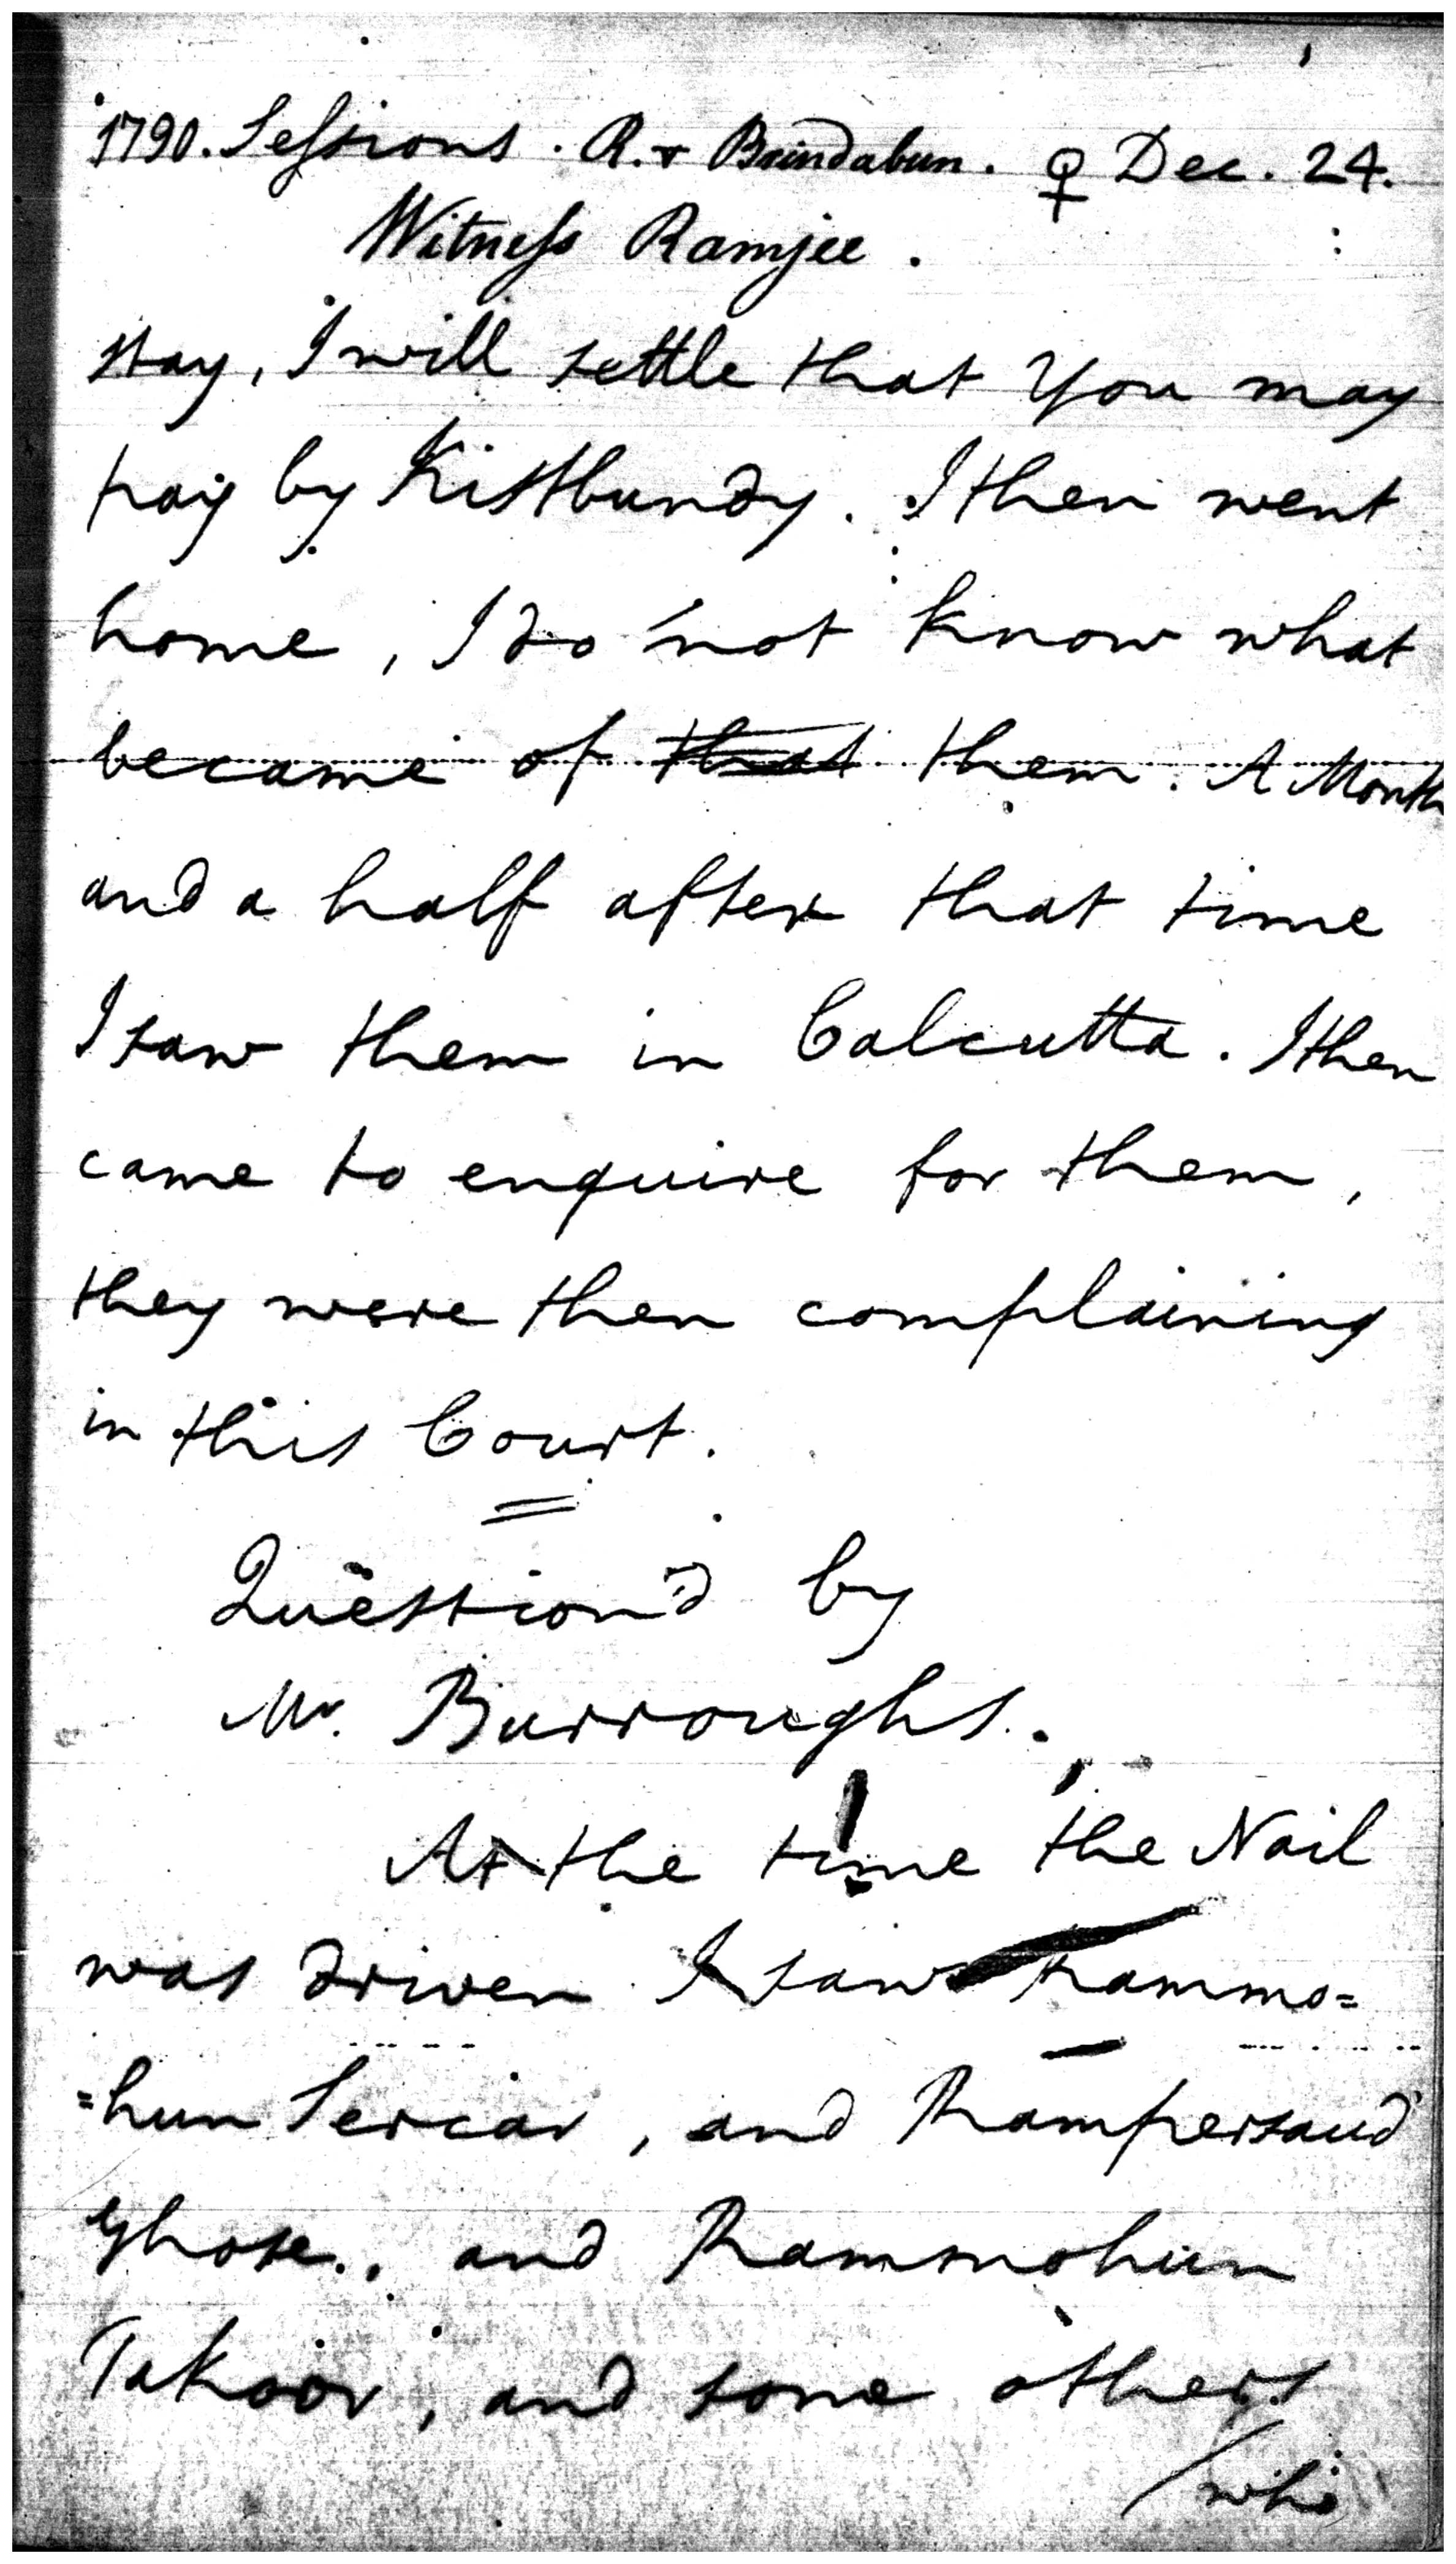 1790. Sessions. R. v Brindabun. ♀ Dec. 24.
Witness Ramjee.
stay, I will settle that you may
pay by Kistbundy. I then went
home, I do not know what
became of that them. A Month
and a half after that time
I saw them in Calcutta. I then
came to enquire for them,
they were then complaining
in this Court.
Question'd by
Mr. Burroughs.
At the time the Nail
was driven I saw Rammo=
=hun Sercar, and Rampersaud
Ghose, and Rammohun
Takoor, and some others
/who